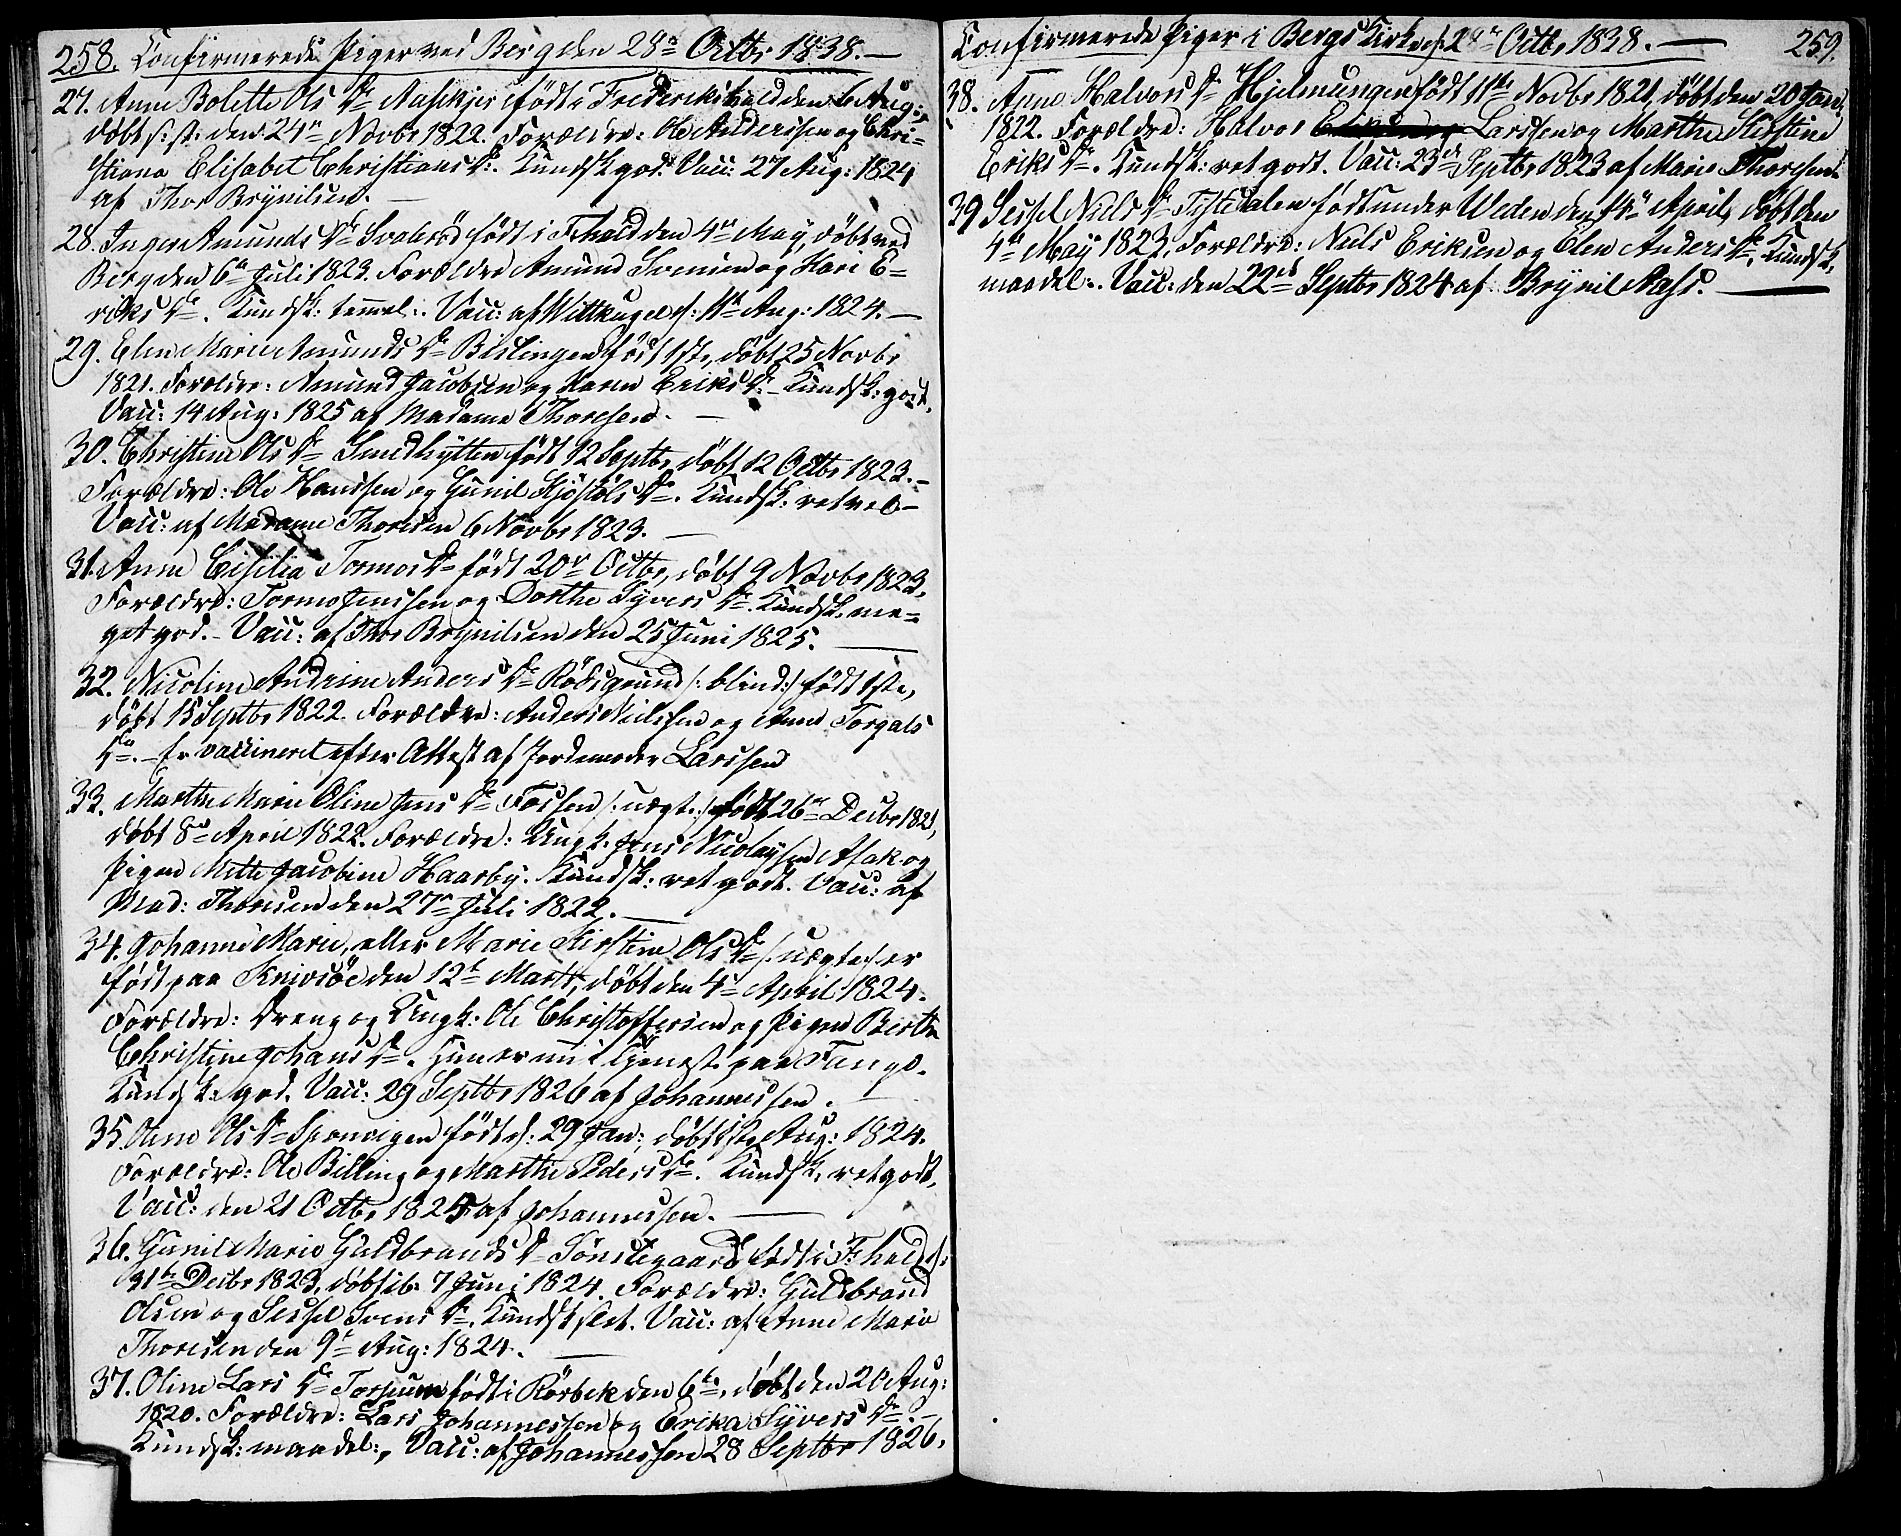 258. Confirmerede Piger ved Berg den 28de Octbr 1838. —
27. Anne Bolette Ols Dr Aasekjer født i Frederikshald den 6 Aug:,
døbt s: st: den 24de Novbr 1822. Forældre: Ole Anderssen og Chri-
stiana Elisabet Christians Dr. Kundsk god. Vacc: 27 Aug: 1824
af Thor Brynilsen. —
28. Inger Amunds Dr født i Fr:hald den 4de May, døbt ved
Berg den 6te Juli 1823. Forældre Amund Svensen og Kari E=
riks Dr. Kundsk: temmel:. Vacc: af Wittkugel d: 11te Aug: 1824. —
29. Elen Marie Amunds Dr Bislingen født 1ste, døbt 25 Novbr
1821. Forældre: Amund Jacobsen og Karen Eriks Dr. – Kundsk: god.
Vacc: 14 Aug: 1825 af Madame Thoresen. —
30. Christine Ols Dr Smedhytten født 12 Septbr, døbt 12 Octbr 1823. –
Forældre: Ole Hanssen og Gunil Kjøstols Dr. Kundsk: ret vel –
Vacc: af Madame Thoresen 6 Novbr 1823. —
31. Anne Cisilia Tormos Dr født 20de Octbr, døbt 9 Novbr 1823.
Forældre: Tormo Jenssen og Dorthe Syvers Dr. Kundsk: me=
get god. – Vacc: af Thor Brynilsen den 25 Juni 1825. —
32. Nicoline Andrine Anders Dr Rødsgrund /: blind :/ født 1ste,
døbt 15 Septbr 1822. Forældre: Anders Nielssen og Anne Torgals
Dr. – Er vaccineret efter Attest af Jordemoder Larssen
33. Marthe Marie Oline Jens Dr Fossen /: uægte :/ født 26de Decbr 1821,
døbt 8de April 1822. Forældre: Ungk: Jens Nicolaysen Asak og
Pigen Mette Jacobine Haarby. Kundsk: ret godt. Vacc: af
Mad: Thoresen den 27de Juli 1822. —
34. Johanne Marie, eller Marie Kirstine Ols Dr /: uægte :/ er
født paa Knivsøe den 12te Marts, døbt den 4de April 1824.
Forældre: Dreng og Ungk: Ole Christoffersen og Pigen Berthe
Christine Johans Dr. Hun er nu i Tjenest paa Tangs.
Kundsk: god. Vacc: 29 Septbr 1826 af Johannessen. —
35. Oline Ols Dr Sponvigen født d: 29 Jan:, døbt 1ste Aug: 1824.
Forældre: Ole Billing og Marthe Peders Dr. Kundsk: ret godt.
Vacc: den 21 Octbr 1825 af Johannessen. —
36. Gunil Marie Guldbrands Dr Tønslegaard født i Fr:hald d:
31te Decbr 1823, døbt ib: 7 Juni 1824. Forældre: Guldbrand
Olsen og Sessel Svens Dr. Kundsk slet. Vacc: af Anne Marie
Thoresen den 9de Aug: 1824. —
37. Oline Lars Dr Torpum født i Rørbek den 6te, døbt den 20 Aug:
1820. Forældre: Lars Johannessen og Erika Syvers Dr. –
Kundsk: maadel:, Vacc: af Johannessen 28 Septbr 1826.
Confirmerede Piger i Bergs Kirke d: 28de Octbr 1838. — 259.
38. Anne Halvors Dr Hjelmungen født 11te Novbr 1821, døbt den 20 Jan:
1822. Forældre: Halvor Larssen og Marthe Kirstine
Eriks Dr. Kundsk: ret godt. Vacc: 23de Septbr 1823 af Marie Thoresen.
39 Sessel Niels Dr Tistedalen født under Weden den 14de April, døbt den
4de May 1823. Forældre: Niels Eriksen og Elen Anders Dr. Kundsk:
maadel:. Vacc: den 22de Septbr 1824 af Brynil Aass. —